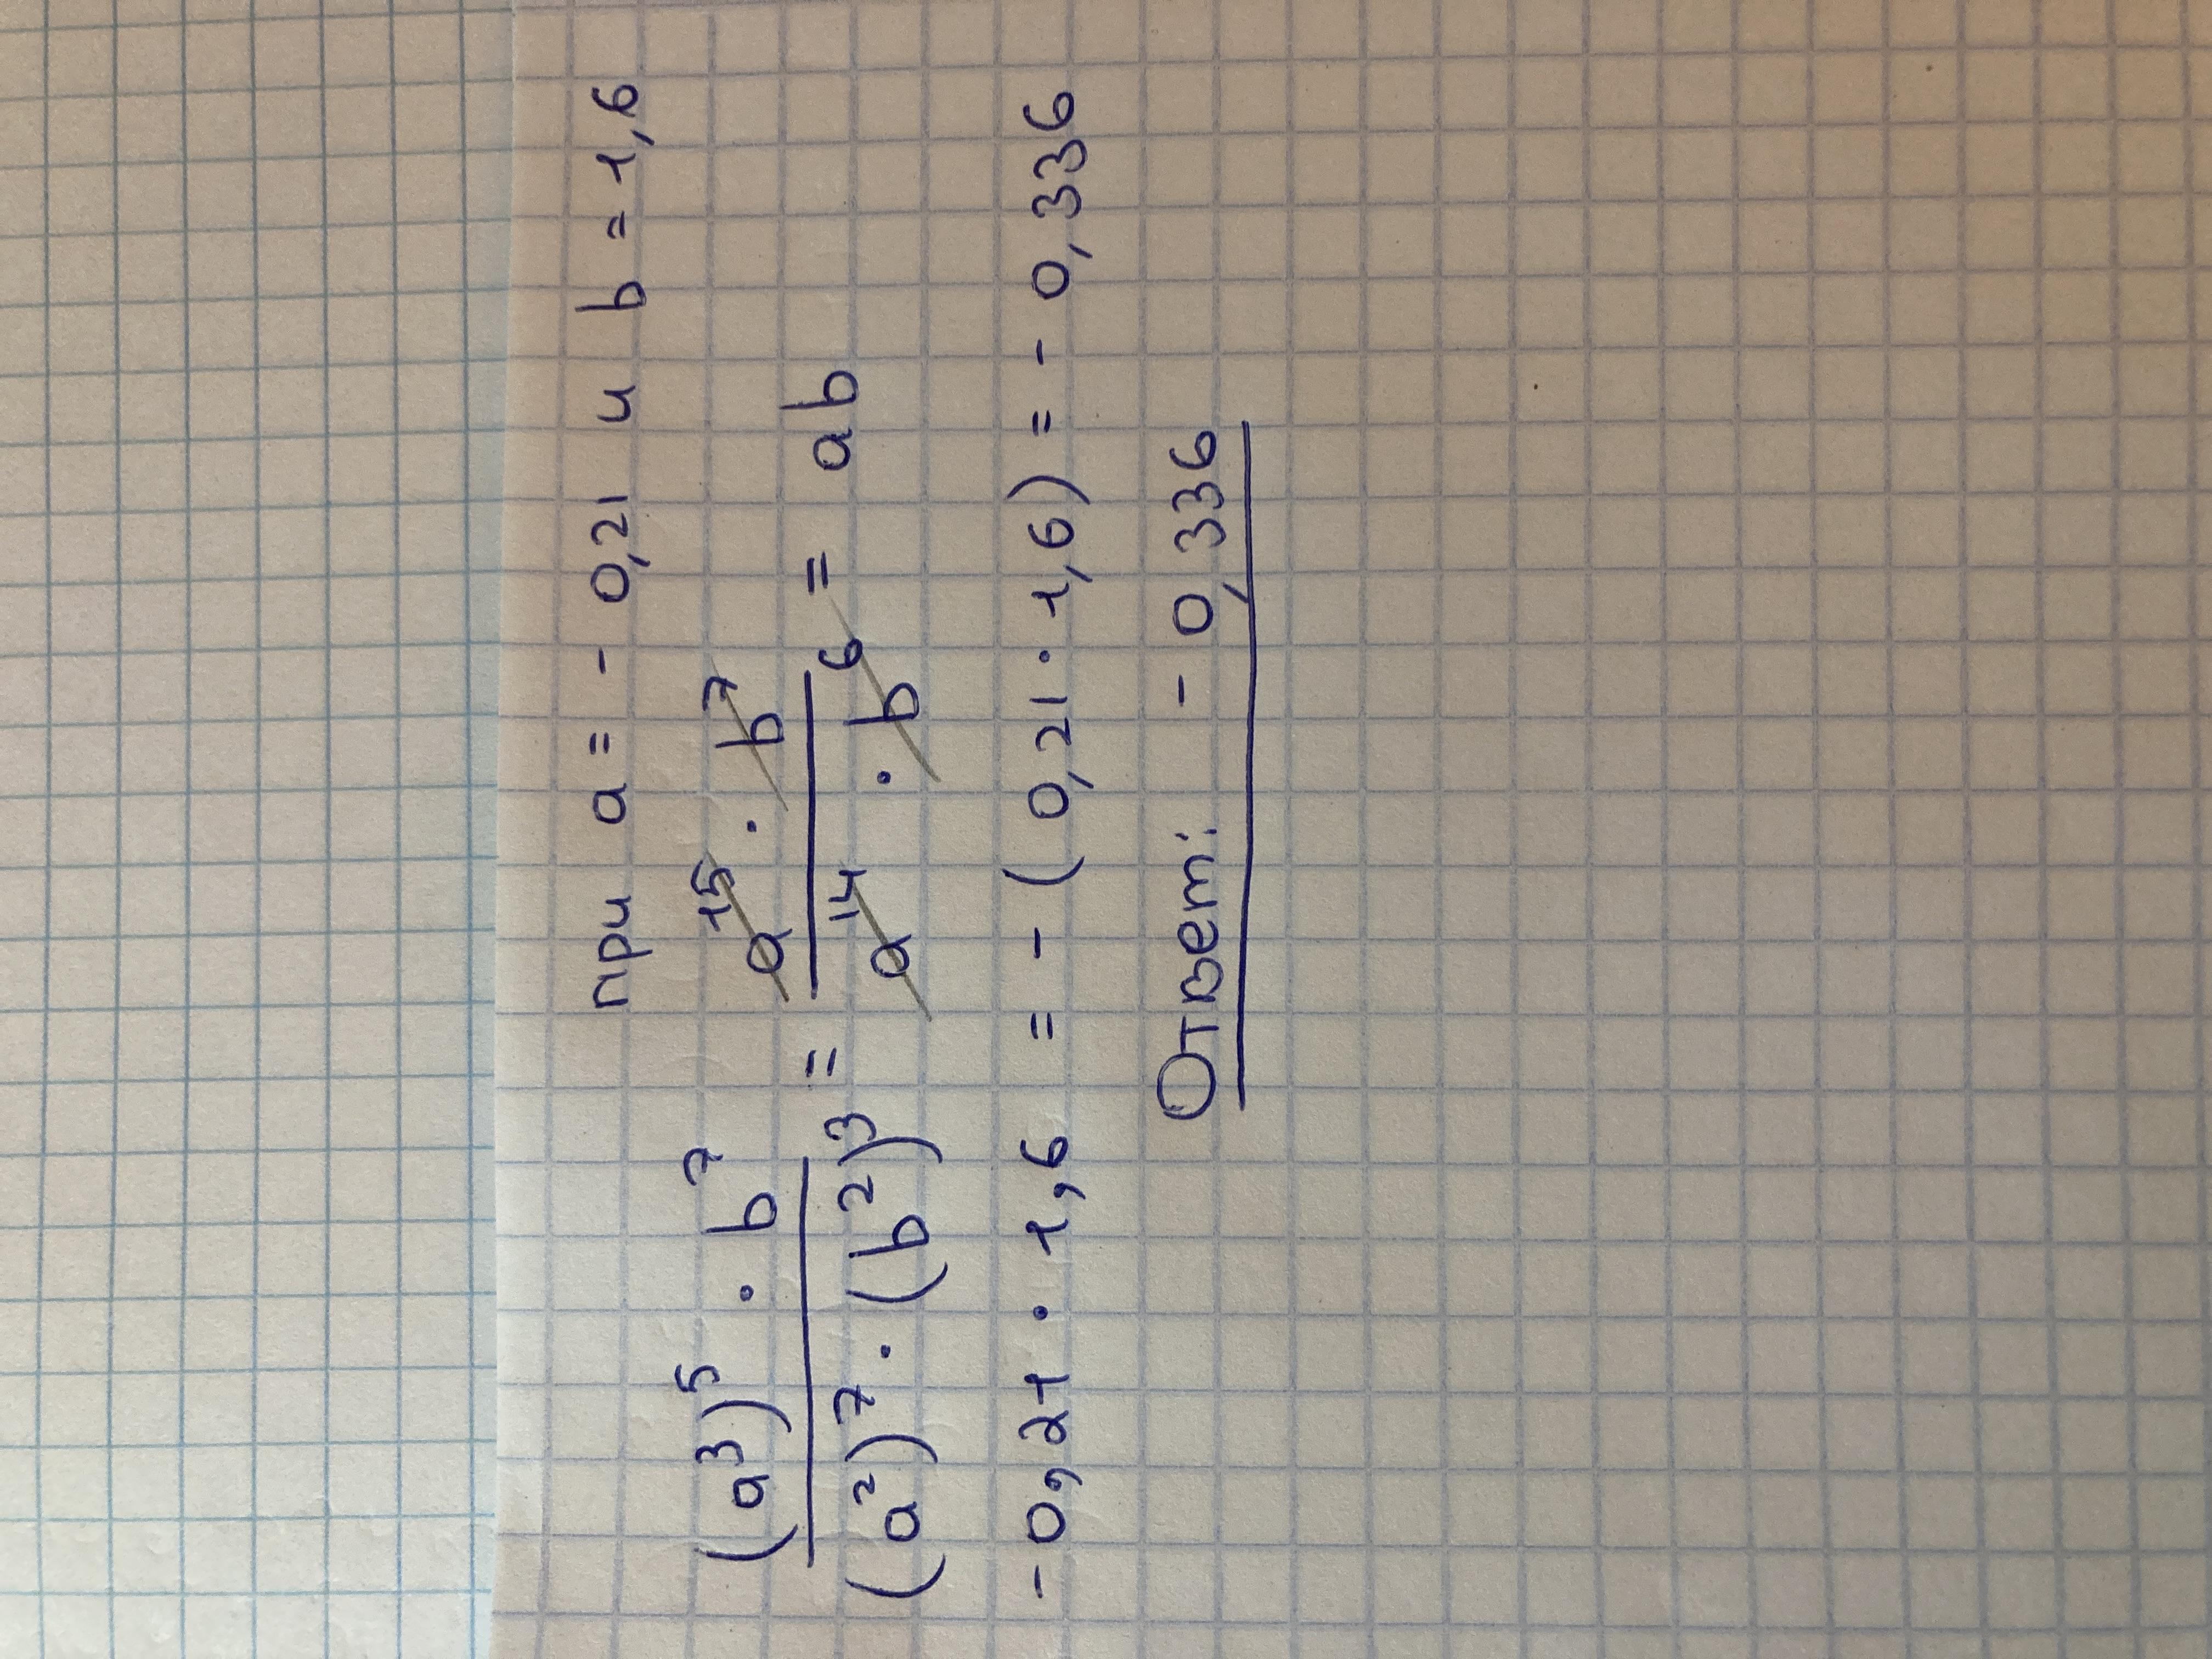 при a = - 0,21 и b = 1,6
(a³)⁵ · b⁷ / (a²)⁷ · (b²)³ = a¹⁵ · b⁷ / a¹⁴ · b⁶ = ab
-0,21 · 1,6 = - (0,21 · 1,6) = - 0,336
Ответ: - 0,336